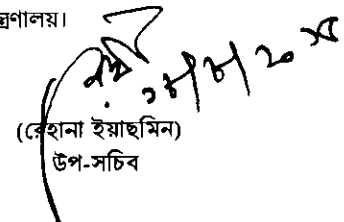 ন্ত্রণালয়।
(রেহানা ইয়াছমিন)
উপ-সচিব